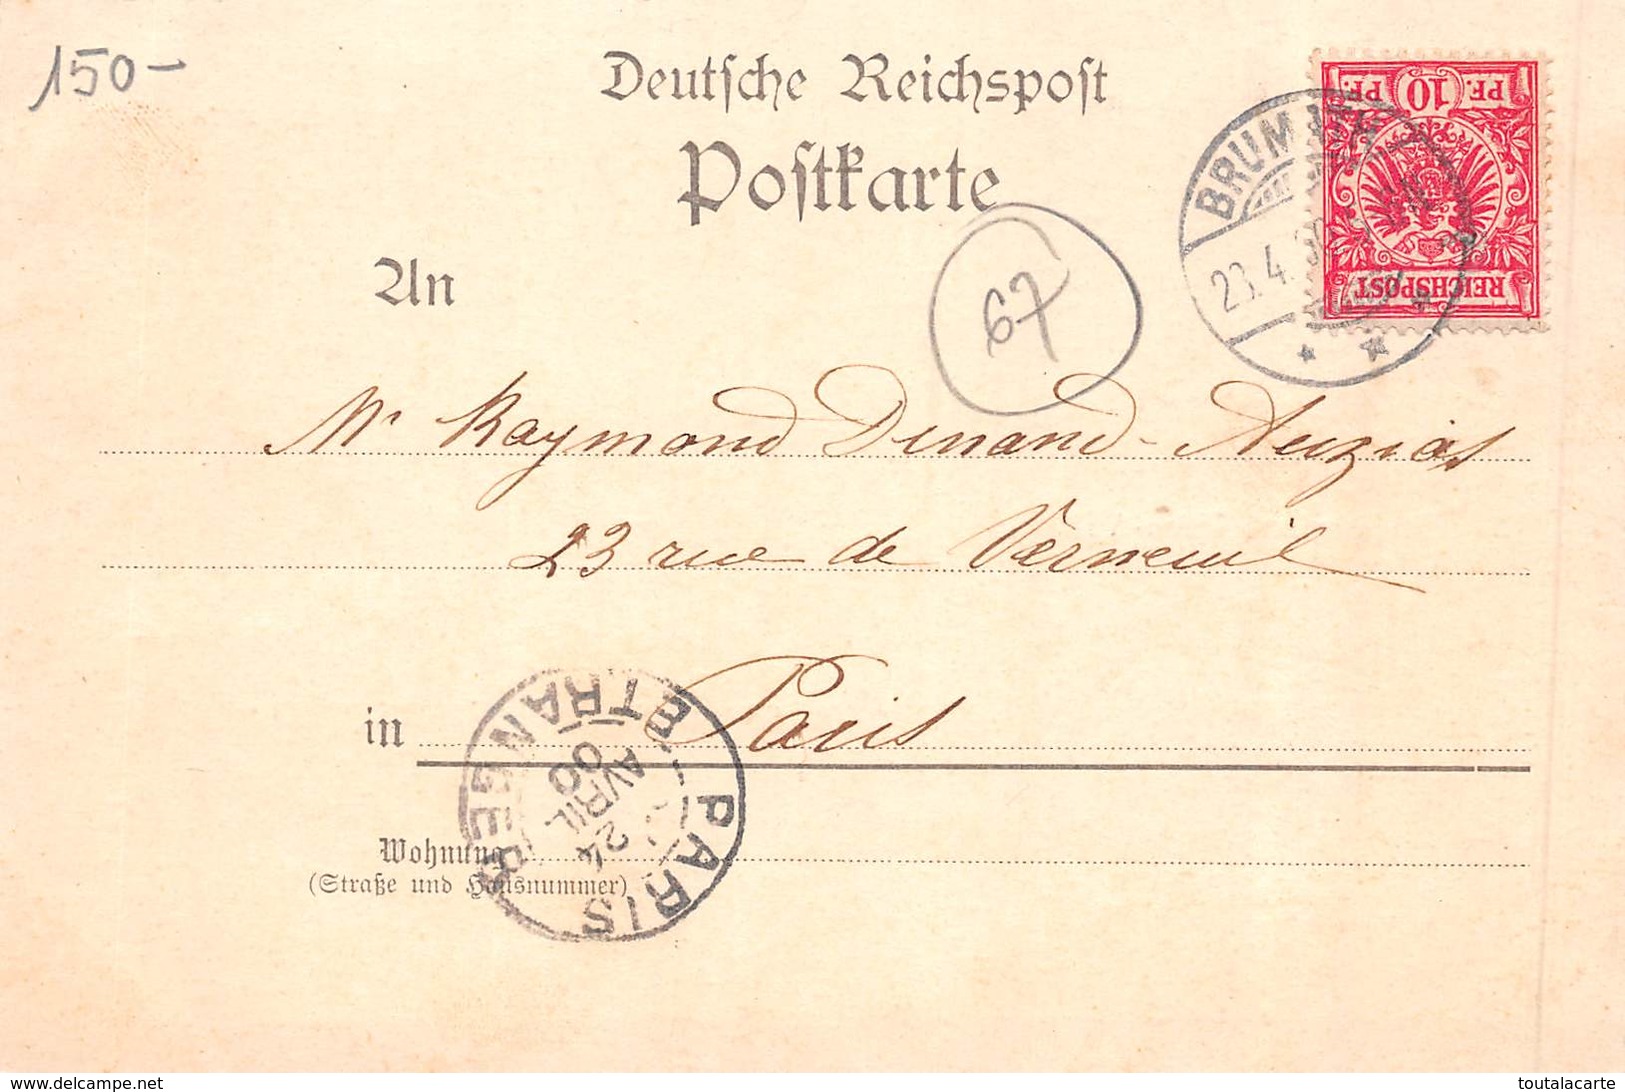 150-
Deutsche Reichspost
Postkarte
PF. 10 PF.
REICHSPOST
BRUMATH
23.4.
An
67
Mr Raymond Dinand-Auzias
23 rue de Verneuil
in Paris
PARIS ETRANGER
24
AVRIL
00
Wohnung
(Straße und Hausnummer)
delcampe.net
toutalacarte